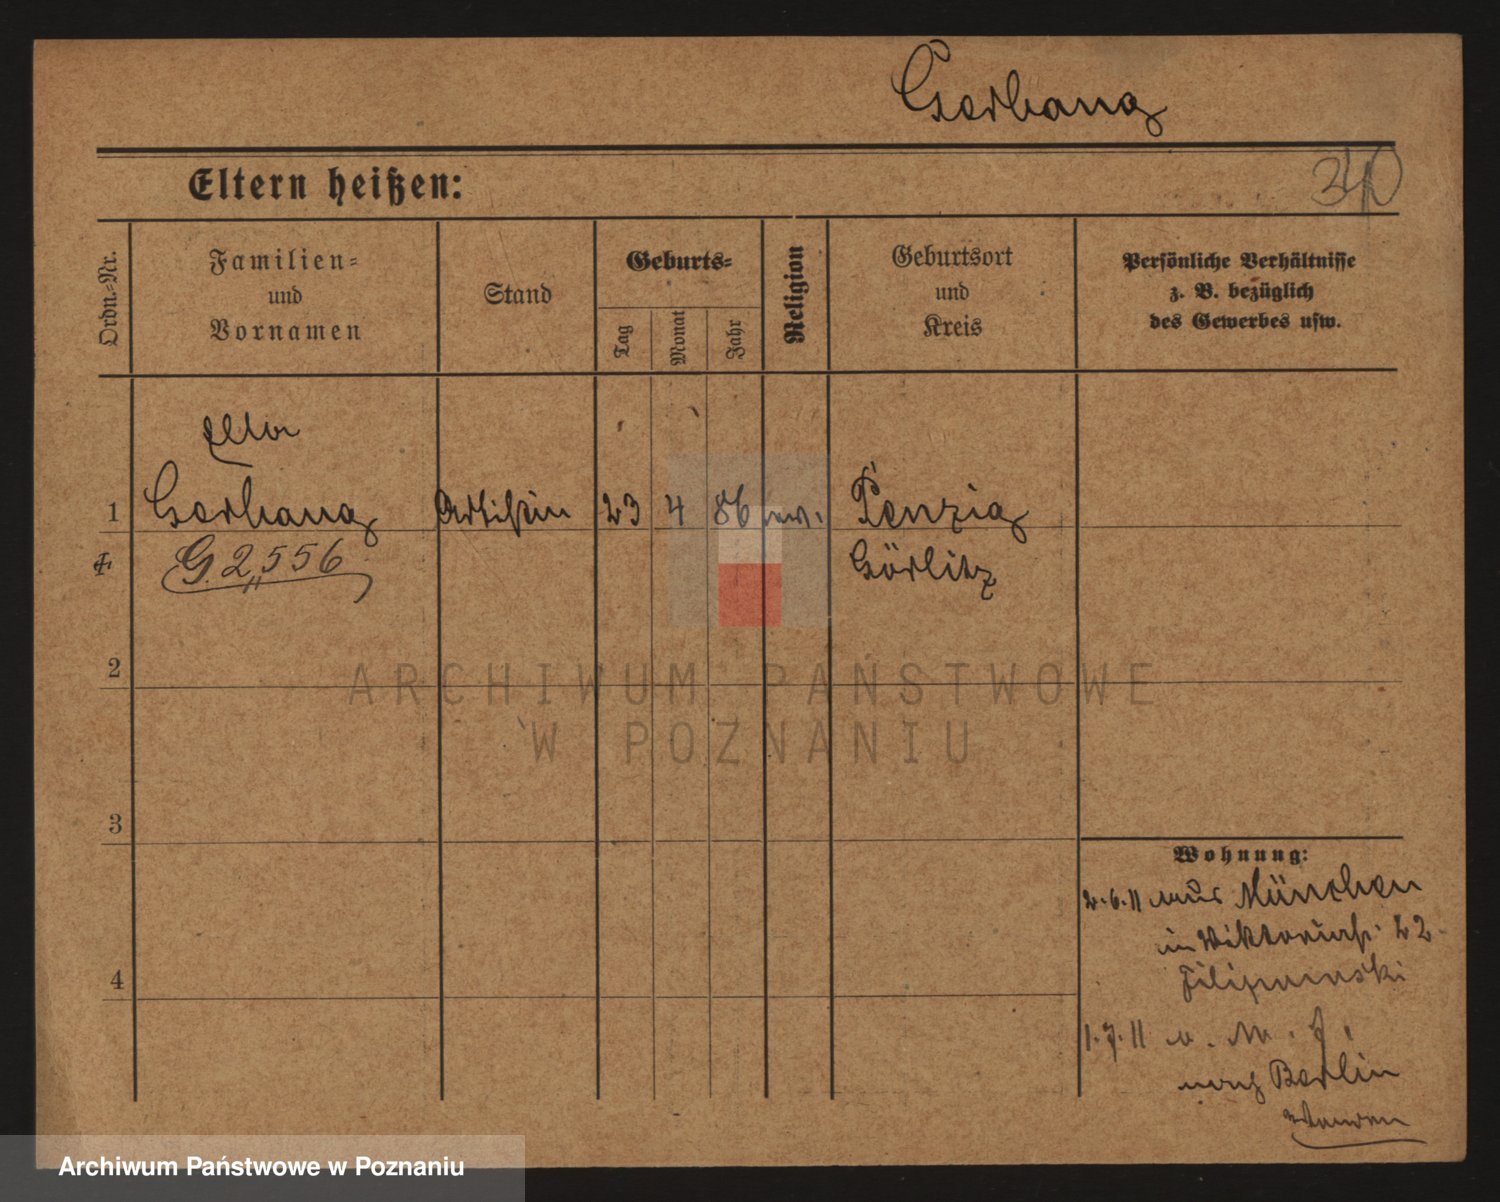 Gerhang
340
Eltern heißen:
Ordn.-Nr.
Familien-
und
Vornamen
Stand
Geburts-
Tag
Monat
Jahr
Religion
Geburtsort
und
Kreis
Persönliche Verhältnisse
z. B. bezüglich
des Gewerbes usw.
Ella
1 Gerhang Artistin 23 4 86 ev. Penzig
G. 2,556 Görlitz
2
3
4
ARCHIWUM PAŃSTWOWE
W POZNANIU
Wohnung:
2.6.11 aus München
in Viktoriastr. 22
1.7.11
nach Berlin
Archiwum Państwowe w Poznaniu